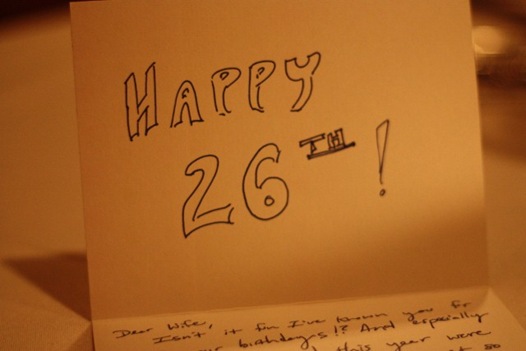 HAPPY
26TH!
Dear Wife,
Isn't it fun I've known you for
birthdays!? And especially
this year were
so